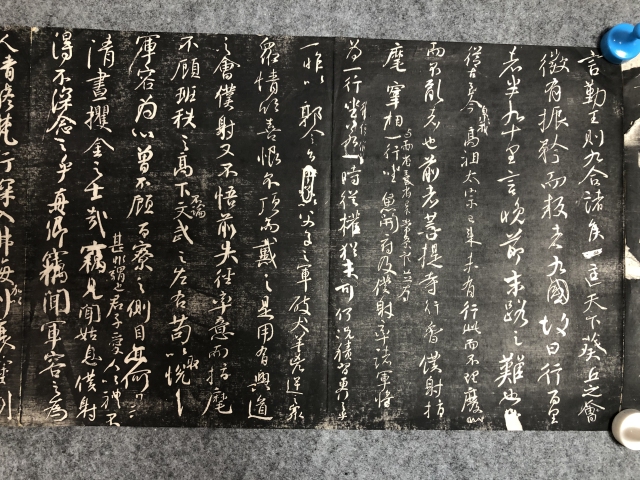 言勤王則九合諸侯一匡天下葵丘之會
微有振矜而叛者九國故曰行百里
者半九十里言晚節末路之難也
從古至今暨我高祖太宗已來未有行此而不理廢此
而不亂者也前者菩提寺行香僕射指
麾宰相與兩省臺省已下常參官並為一行坐魚開府及僕射率諸軍將
為一行坐若一時從權猶未可何況積習更行之乎
一昨以郭令公以父子之軍破犬羊兇逆之衆
衆情欣喜恨不頂而戴之是用有興道
之會僕射又不悟前失徑率意而指麾
不顧班秩之高下不論文武之左右苟以取悅
軍容為心曾不顧百寮之側目亦何異
清晝攫金之士哉甚非謂也君子愛人以禮不竊見聞姑息僕射
得不深念之乎真卿竊聞軍容之為
人清修梵行深入佛海